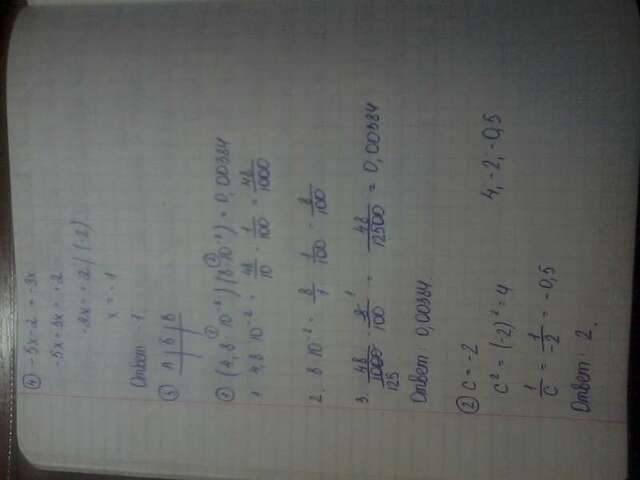 ④ -5x-2 = -3x
-5x+3x=+2
-2x = +2 | (-2)
x = -1
Ответ: -1.
③ А | Б | В
① (4,8·10⁻²)(8·10⁻²) = 0,00384
1. 4,8·10⁻² = 48/10 · 1/100 = 48/1000
2. 8·10⁻² = 8/1 · 1/100 = 8/100
3. 48/1000 · 8/100 = 48/12500 = 0,00384
125 1
Ответ: 0,00384
② c = -2
c² = (-2)² = 4 4, -2, -0,5
1/c = 1/-2 = -0,5
Ответ: 2.